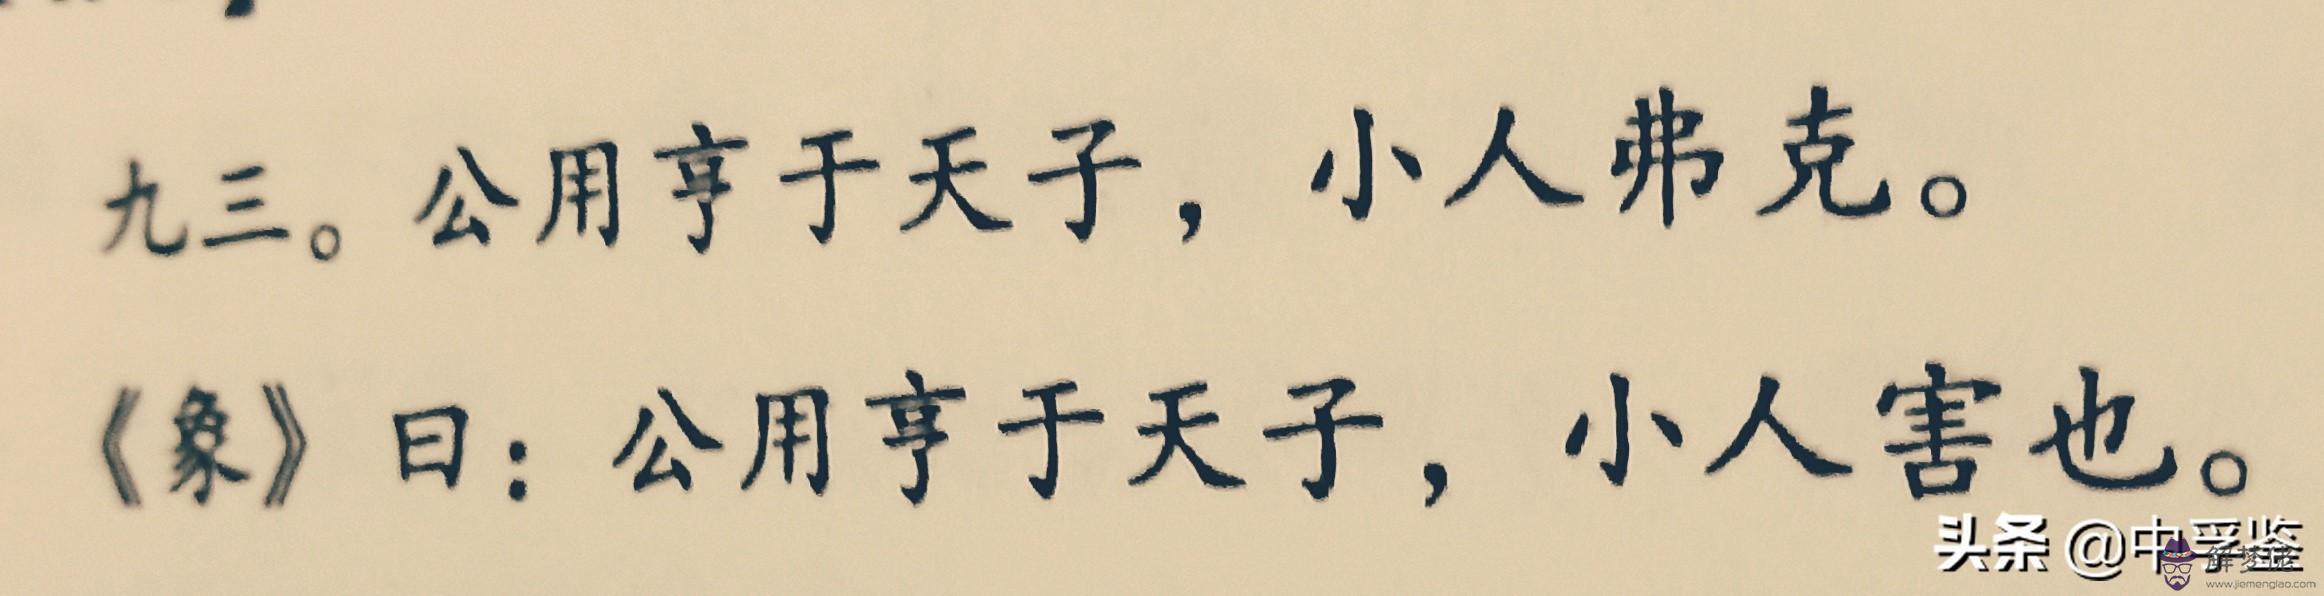 九三。公用亨于天子，小人弗克。
《象》曰：公用亨于天子，小人害也。
头条 @中孚鉴
解梦佬
www.jiemenglao.com